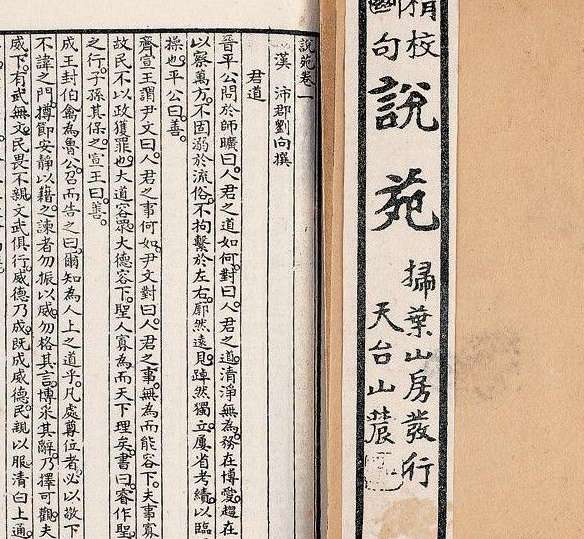 精校
斷句
說苑
掃葉山房發行
天台山農
說苑卷一
漢 沛郡劉向撰
君道
晉平公問於師曠曰。人君之道如何。對曰。人君之道。清淨無為。務在博愛。趨在
以察萬方。不固溺於流俗。不拘繫於左右。廓然遠見。踔然獨立。屢省考績。以臨
操也。平公曰。善。
齊宣王謂尹文曰。人君之事何如。尹文對曰。人君之事。無為而能容下。夫事寡
故民不以政獲罪也。大道容眾。大德容下。聖人寡為而天下理矣。書曰。睿作聖
之行。子孫其保之。宣王曰。善。
成王封伯禽為魯公。召而告之曰。爾知為人上之道乎。凡處尊位者。必以敬下
不諱之門。撙節安靜以藉之。諫者勿振以威。勿格其言。博采其辭。乃擇可觀。夫
威下。有武無文。民畏不親。文武俱行。威德乃成。既成威德。民親以服。清白上通